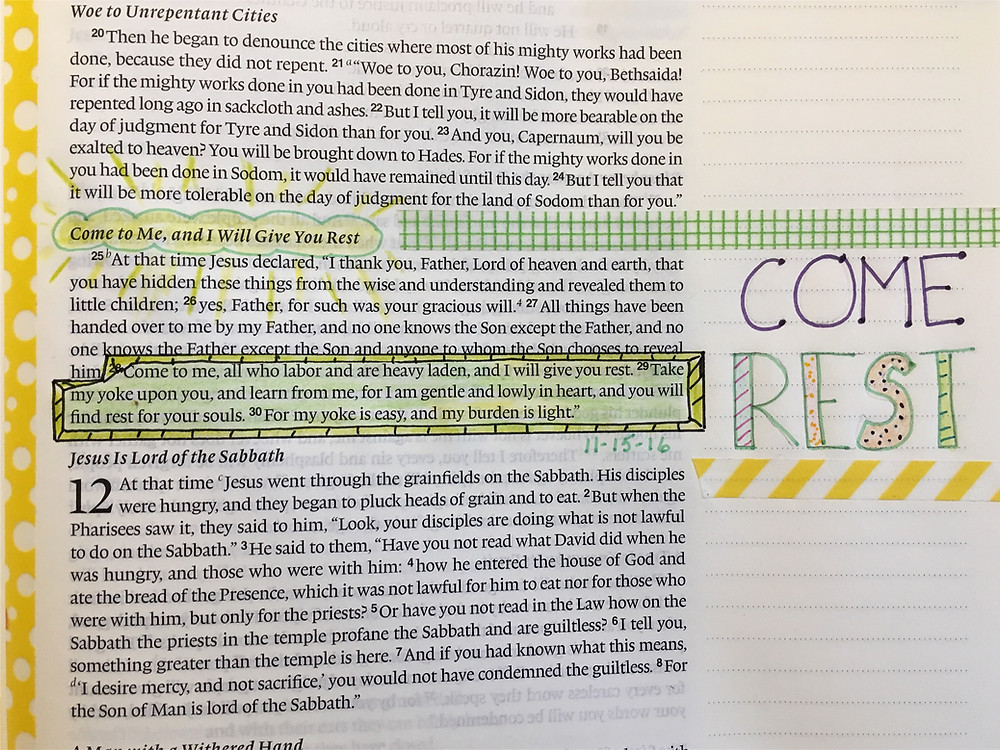 Woe to Unrepentant Cities
20 Then he began to denounce the cities where most of his mighty works had been
done, because they did not repent. 21 a“Woe to you, Chorazin! Woe to you, Bethsaida!
For if the mighty works done in you had been done in Tyre and Sidon, they would have
repented long ago in sackcloth and ashes. 22 But I tell you, it will be more bearable on the
day of judgment for Tyre and Sidon than for you. 23 And you, Capernaum, will you be
exalted to heaven? You will be brought down to Hades. For if the mighty works done in
you had been done in Sodom, it would have remained until this day. 24 But I tell you that
it will be more tolerable on the day of judgment for the land of Sodom than for you.”
Come to Me, and I Will Give You Rest
25 b At that time Jesus declared, “I thank you, Father, Lord of heaven and earth, that
you have hidden these things from the wise and understanding and revealed them to
little children; 26 yes, Father, for such was your gracious will. 4 27 All things have been
handed over to me by my Father, and no one knows the Son except the Father, and no
one knows the Father except the Son and anyone to whom the Son chooses to reveal
him. 28 Come to me, all who labor and are heavy laden, and I will give you rest. 29 Take
my yoke upon you, and learn from me, for I am gentle and lowly in heart, and you will
find rest for your souls. 30 For my yoke is easy, and my burden is light.”
11-15-16
COME
REST
Jesus Is Lord of the Sabbath
12 At that time c Jesus went through the grainfields on the Sabbath. His disciples
were hungry, and they began to pluck heads of grain and to eat. 2 But when the
Pharisees saw it, they said to him, “Look, your disciples are doing what is not lawful
to do on the Sabbath.” 3 He said to them, “Have you not read what David did when he
was hungry, and those who were with him: 4 how he entered the house of God and
ate the bread of the Presence, which it was not lawful for him to eat nor for those who
were with him, but only for the priests? 5 Or have you not read in the Law how on the
Sabbath the priests in the temple profane the Sabbath and are guiltless? 6 I tell you,
something greater than the temple is here. 7 And if you had known what this means,
d ‘I desire mercy, and not sacrifice,’ you would not have condemned the guiltless. 8 For
the Son of Man is lord of the Sabbath.”
A Man with a Withered Hand
with